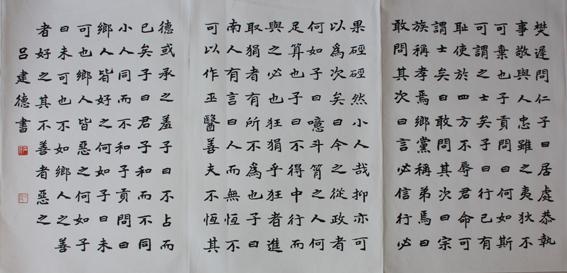 樊遲問仁子曰居處恭執
事敬與人忠雖之夷狄不
可棄也子貢問曰何如斯
可謂之士矣子曰行己有
恥使於四方不辱君命可
謂士矣曰敢問其次曰宗
族稱孝焉鄉黨稱弟焉曰
敢問其次曰言必信行必
果硜硜然小人哉抑亦可
以為次矣曰今之從政者
何如子曰噫斗筲之人何
足算也子曰不得中行而
與之必也狂狷乎狂者進
取狷者有所不為也子曰
南人有言曰人而無恆不
可以作巫醫善夫不恆其
德或承之羞子曰不占而
已矣子曰君子和而不同
小人同而不和子貢問曰
鄉人皆好之何如子曰未
可也鄉人皆惡之何如子
曰未可也不如鄉人之善
者好之其不善者惡之
呂建德書